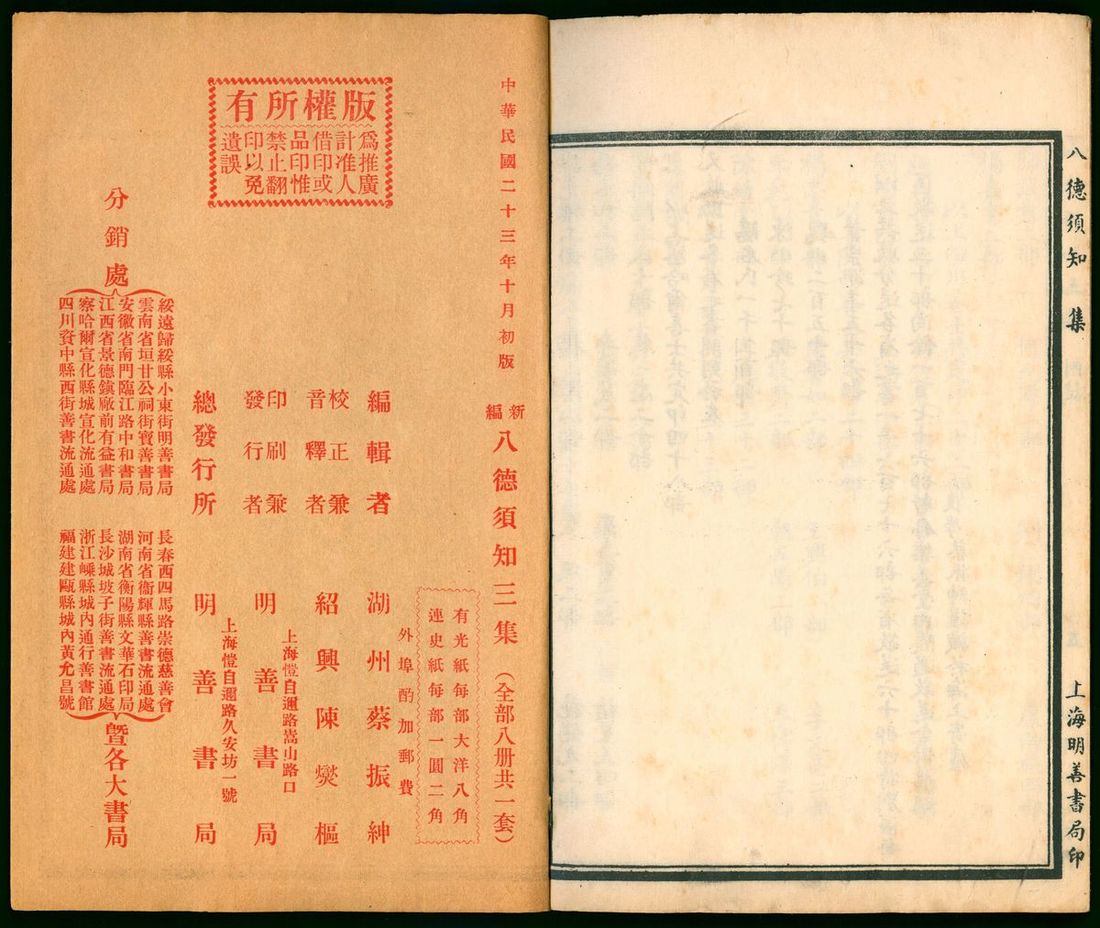 八德須知三集
上海明善書局印
中華民國二十三年十月初版
新編 八德須知三集 (全部八册共一套)
有光紙每部大洋八角
連史紙每部一圓二角
外埠酌加郵費
編輯者 湖州蔡振紳
校正兼
音釋者 紹興陳爕樞
印刷兼
發行者 上海愷自邇路嵩山路口
明善書局
總發行所 上海愷自邇路久安坊一號
明善書局
版權所有
爲推廣
計准人
借印或
品印惟
禁止翻
印以免
遺誤
分銷處
綏遠歸綏縣小東街明善書局
雲南省垣廿公祠街寶善書局
安徽省南門臨江路中和書局
江西省景德鎮廠前有益書局
察哈爾宣化縣城宣化流通處
四川資中縣西街善書流通處
長春西四馬路崇德慈善會
河南省衞輝縣善書流通處
湖南省衡陽縣文華石印局
長沙城坡子街善書流通處
浙江嵊縣城內通行善書館
福建建甌縣城內黃允昌號
暨各大書局